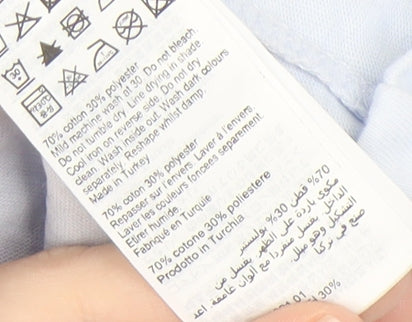 30
30°C
70% cotton 30% polyester
Mild machine wash at 30. Do not bleach.
Do not tumble dry. Line drying in shade
Cool iron on reverse side. Do not dry
clean. Wash inside out. Wash dark colours
separately. Reshape whilst damp.
Made in Turkey
70% coton 30% polyester
Repasser sur l'envers. Laver à l'envers.
Laver les couleurs foncées separement.
Etirer humide.
Fabriqué en Turquie
70% cotone 30% poliestere
Prodotto in Turchia
70% قطن 30% بوليستر
مكوي باردة على الظهر، يغسل من
الداخل، يغسل منفردا مع ألوان غامقة. اعد
التشكيل وهو مبلل
صنع في تركيا
01
30%